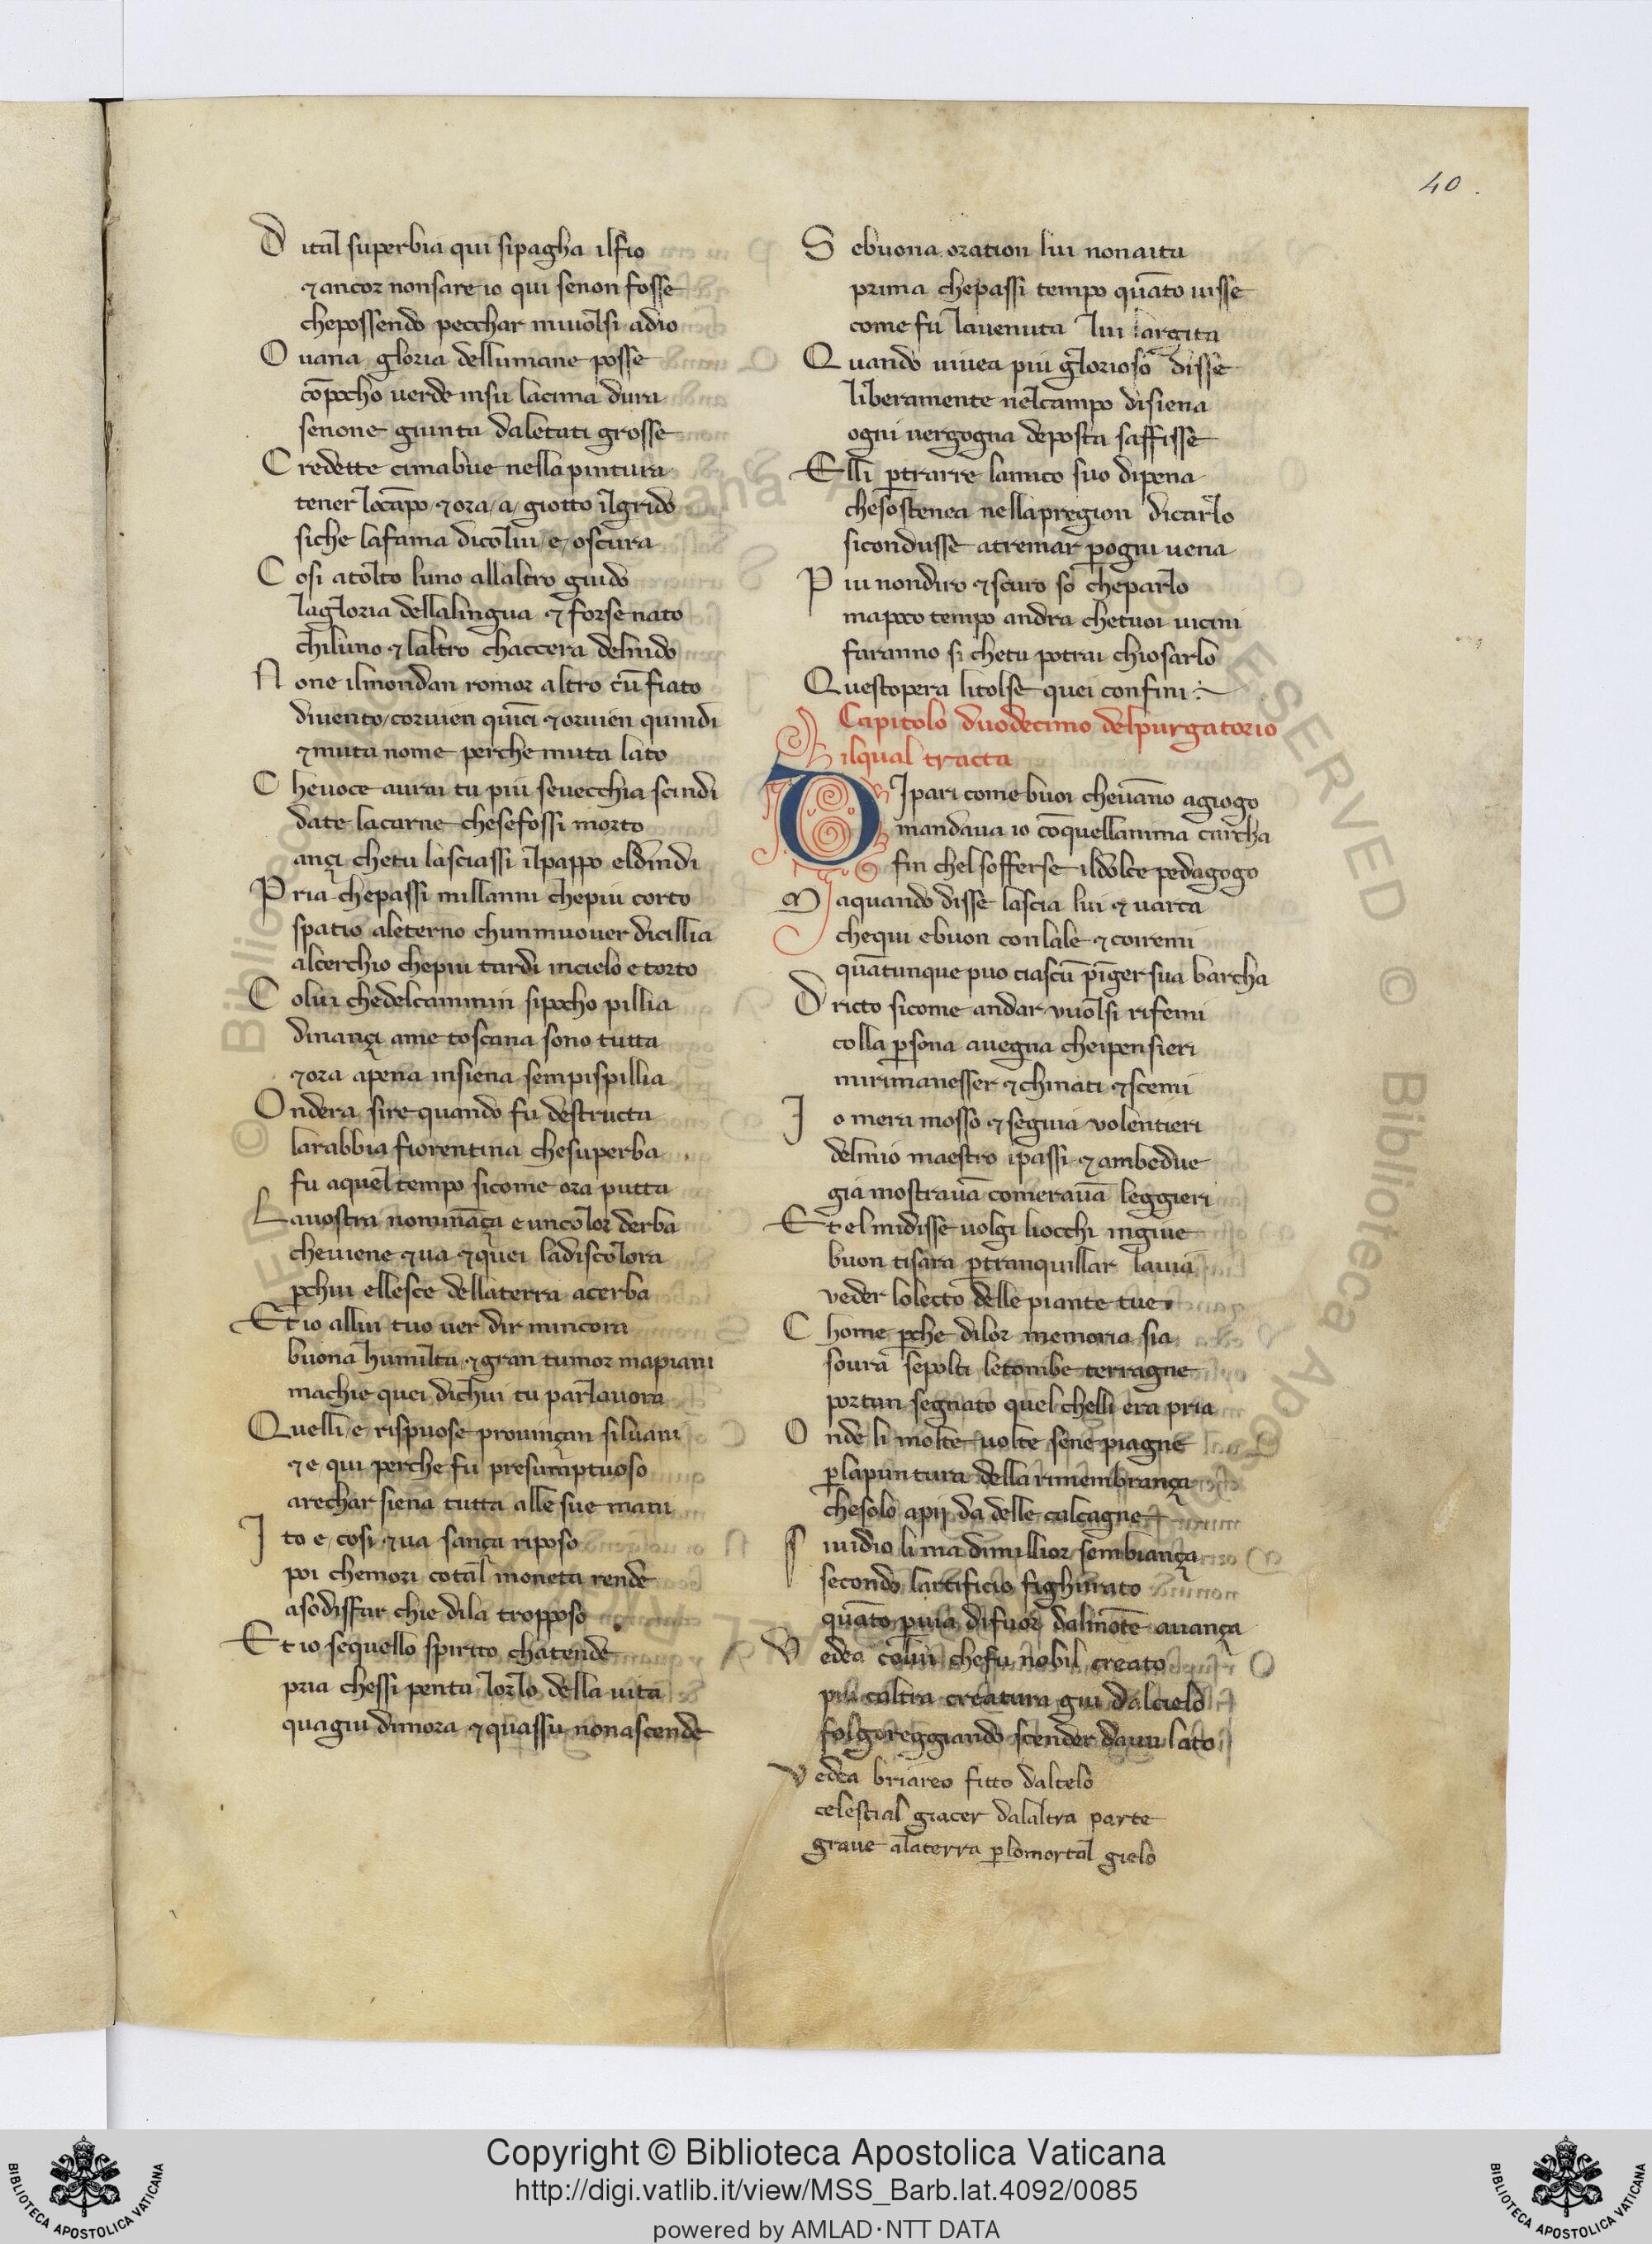 40.
D ital superbia qui sipagha ilfio
⁊ancor nonsare io qui senon fosse
chepossendo pecchar miuolsi adio
O uana gloria dellumane posse
cōpocho uerde insu lacima dura
senone giunta daletati grosse
C redette cimabue nella pintura
tener locāpo ⁊ora /a/ giotto ilgrido
siche lafama dicolui /e/ oscura
C osi atolto luno allaltro guido
lagloria dellalingua ⁊ forse nato
chiluno ⁊ laltro chaccera delnido
N one ilmondan romor altro cūfiato
diuento/coruien quīci ⁊oruien quindi
⁊muta nome perche muta lato
C heuoce aurai tu piu seuecchia scindi
date lacarne chesefossi morto
ançi chetu lasciassi ilpappo eldindi
P ria chepassi millanni chepiu corto
spatio aleterno chunmuouer dicillia
alcerchio chepiu tardi incielo e torto
C olui chedelcammin sipocho pillia
dinançi ame toscana sono tutta
⁊ora apena insiena sempispillia
O ndera sire quando fu destructa
larabbia fiorentina chesuperba
fu aquel tempo sicome ora putta
L auostra nomināça e uncolor derba
cheuiene ⁊ua ⁊quei ladiscolora
pchui ellesce dellaterra acerba
Et io allui tuo uer dir mincora
buona humilta ⁊gran tumor mapiani
machie quei dichui tu parlauora
Quelli/e/ rispuose prouinçan siluani
⁊e qui perche fu presumptuoso
arechar siena tutta alle sue mani
I to e/cosi ⁊ua sança riposo
poi chemori cotal moneta rende
asodisfar chie dila tropposo
Et io sequello spirito chatende
pria chessi penta lorlo della uita
quagiu dimora ⁊quassu nonascende
S ebuona oration lui nonaita
prima chepassi tempo quāto uisse
come fu lauenuta lui largita
Quando uiuea piu glorioso disse
liberamente nelcampo disiena
ogni uergogna deposta saffisse
Elli ptrarre lamico suo dipena
chesostenea nellapregion dicarlo
sicondusse atremar pogni uena
P iu nondiro ⁊scuro so cheparlo
mapoco tempo andra chetuoi uicini
faranno si chetu potrai chiosarlo
Questopera litolse quei confini
Capitolo duodecimo delpurgatorio
ilqual tracta
D Ipari come buoi cheuāno agiogo
mandaua io cōquellanima carcha
fin chelsofferse ildolce pedagogo
M aquando disse lascia lui ⁊ uarca
chequi ebuon conlale ⁊ coiremi
quātunque puo ciascū piger sua barcha
D ricto sicome andar uuolsi rifemi
colla psona auegna cheipensieri
mirimanesser ⁊chinati ⁊scemi
I o mera mosso ⁊seguia volentieri
delmio maestro ipassi ⁊ambedue
gia mostrauā comerauā leggieri
Et el midisse uolgi liocchi ingiue
buon tisara ptranquillar lauia
veder lolecto delle piante tue
C home pche dilor memoria sia
soura sepolti letombe terragne
portan segnato quel chelli era pria
O nde li molte uolte sene piagne
plapuntura della rimembrança
chesolo apij da delle calcagne
S iuidio li ma dimillior sembiança
secondo lartificio fighurato
quāto puia difuor dalmōte auança
V edea colui chefu nobil creato
piu caltra creatura giu dalcielo
folgoreggiando scender dauulato
V edea briareo fitto daltelo
celestial giacer dalaltra parte
graue alaterra plomortal gielo
Copyright © Biblioteca Apostolica Vaticana
http://digi.vatlib.it/view/MSS_Barb.lat.4092/0085
powered by AMLAD·NTT DATA
BIBLIOTECA APOSTOLICA VATICANA
BIBLIOTECA APOSTOLICA VATICANA